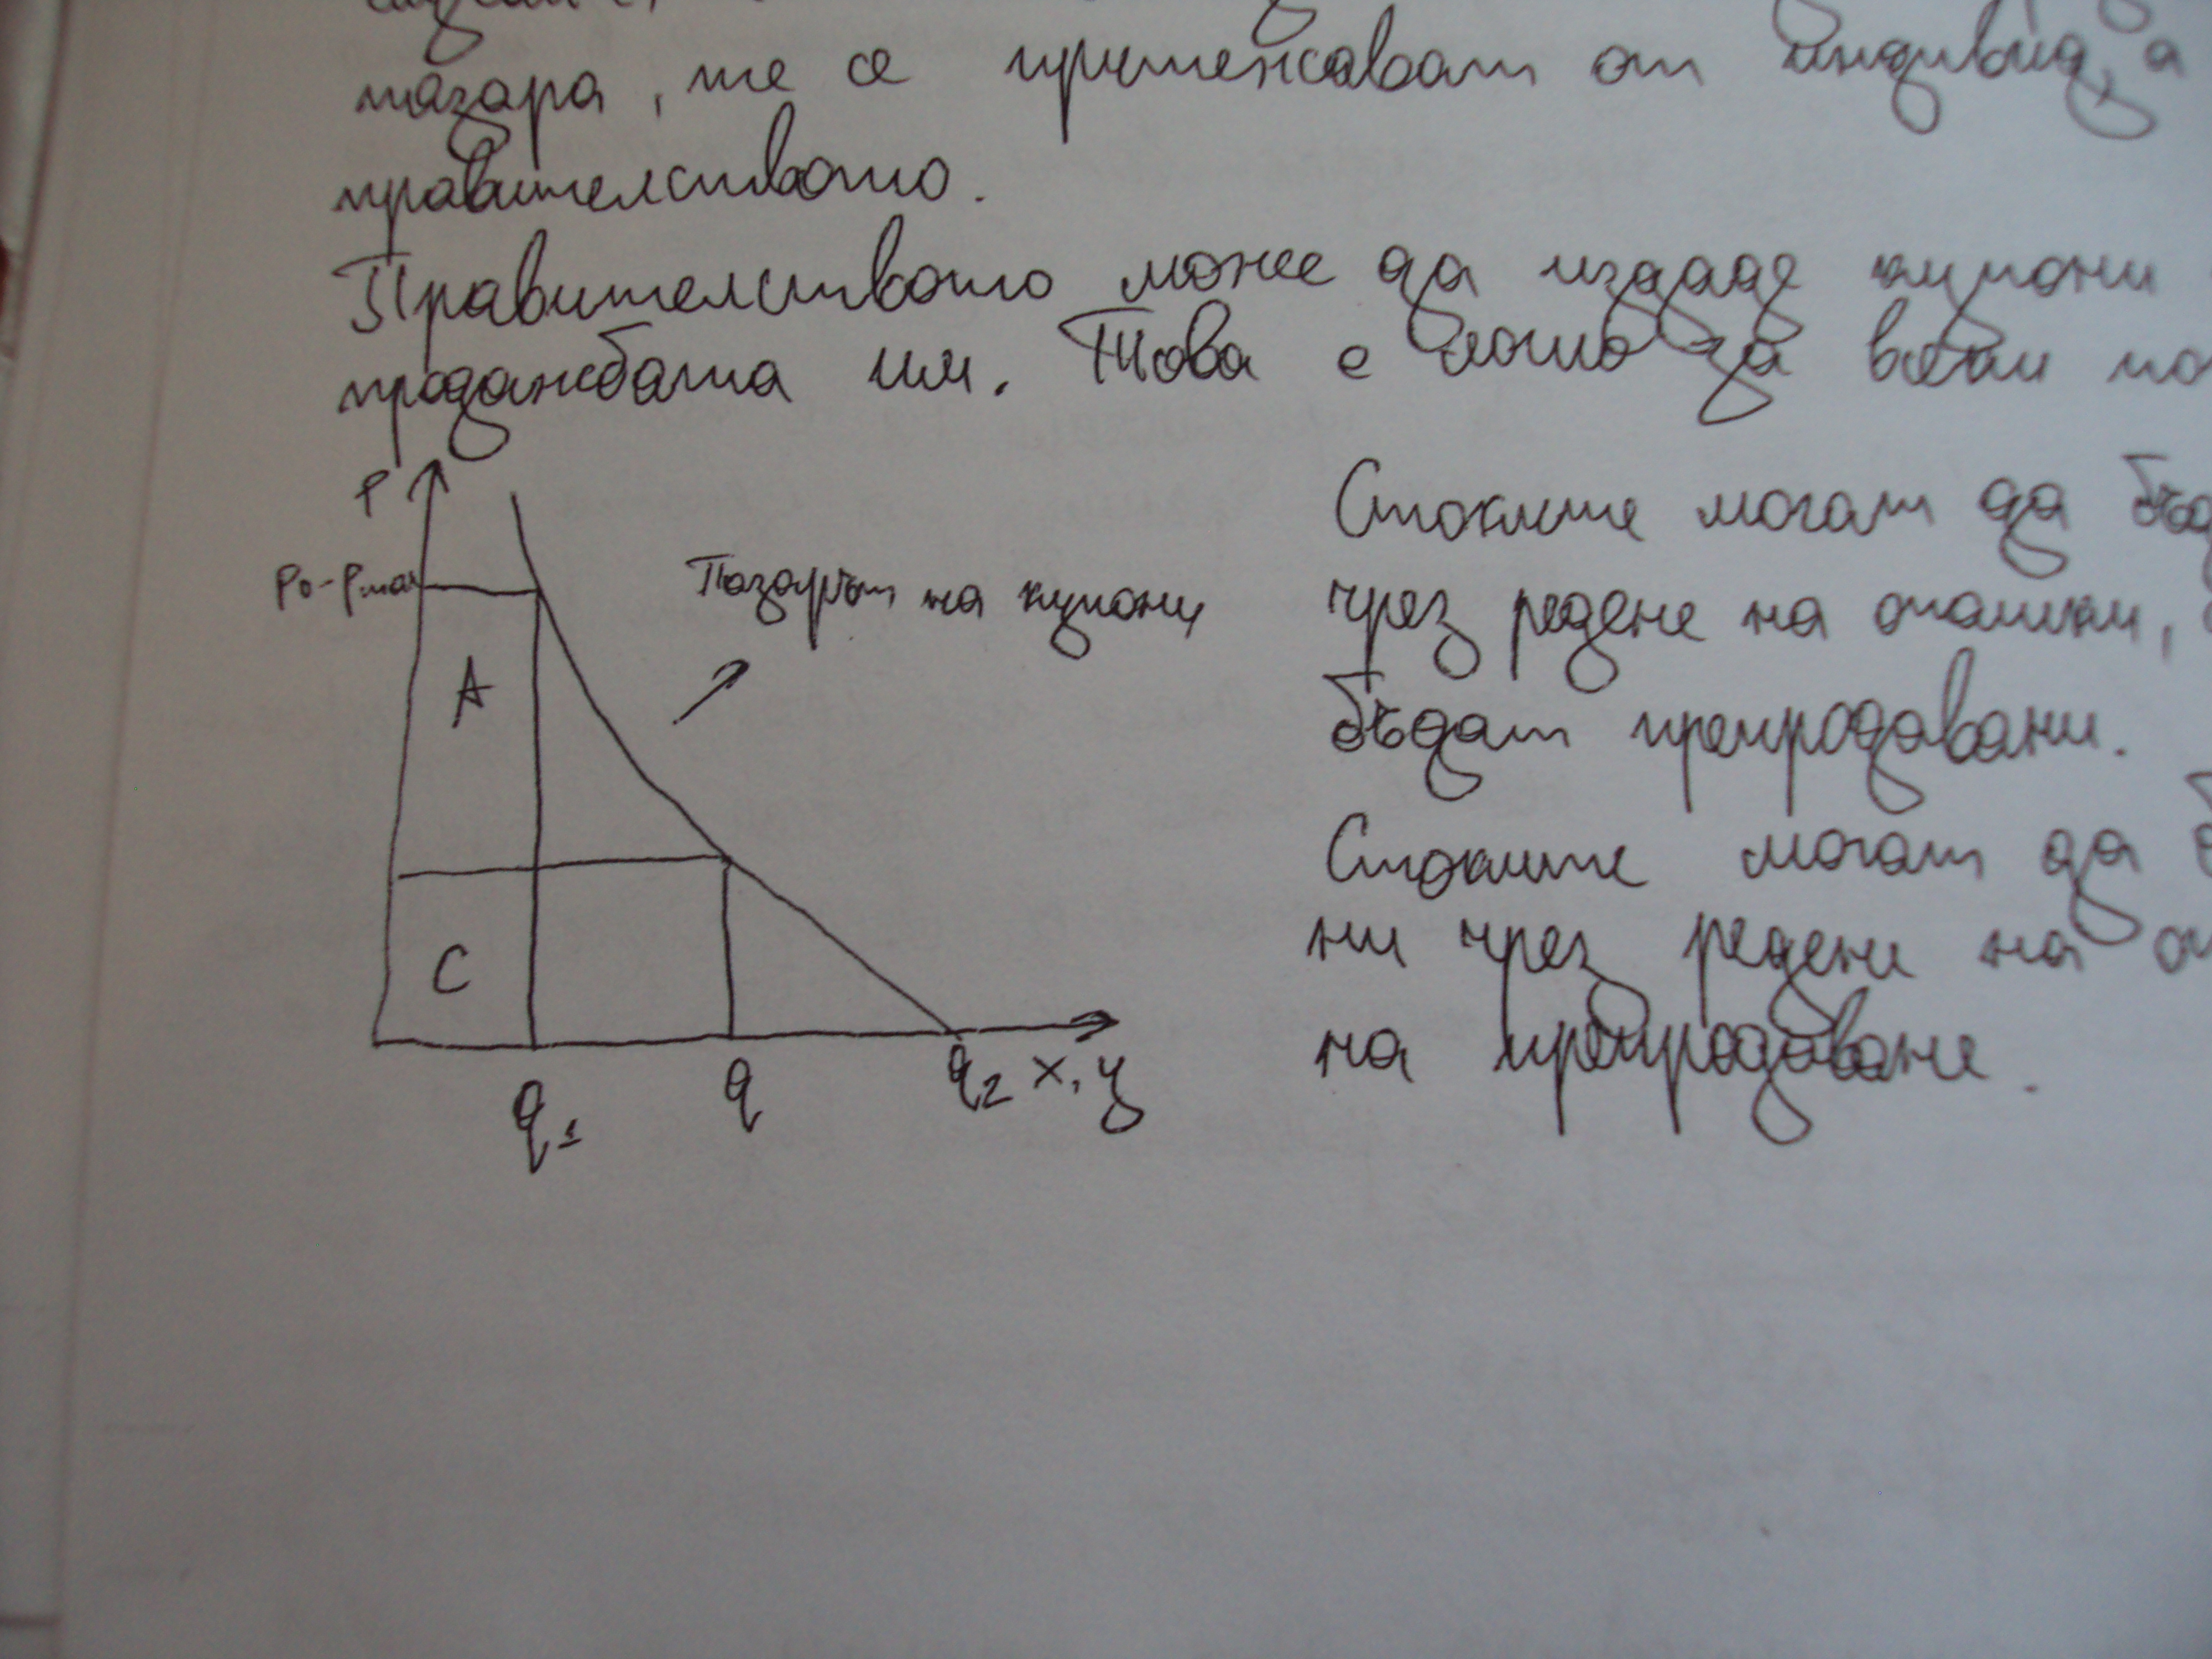 пазара, те се притежават от индивид, а
правителството.
Правителството може да издаде купони
продажбата им. Това е лошо за всеки по
P
P₀-Pmax
Пазарът на купони
A
C
q₁
q
q₂ x,y
Стоките могат да бъд
чрез редене на опашки,
бъдат препродавани.
Стоките могат да б
ни чрез редене на оп
на препродаване.